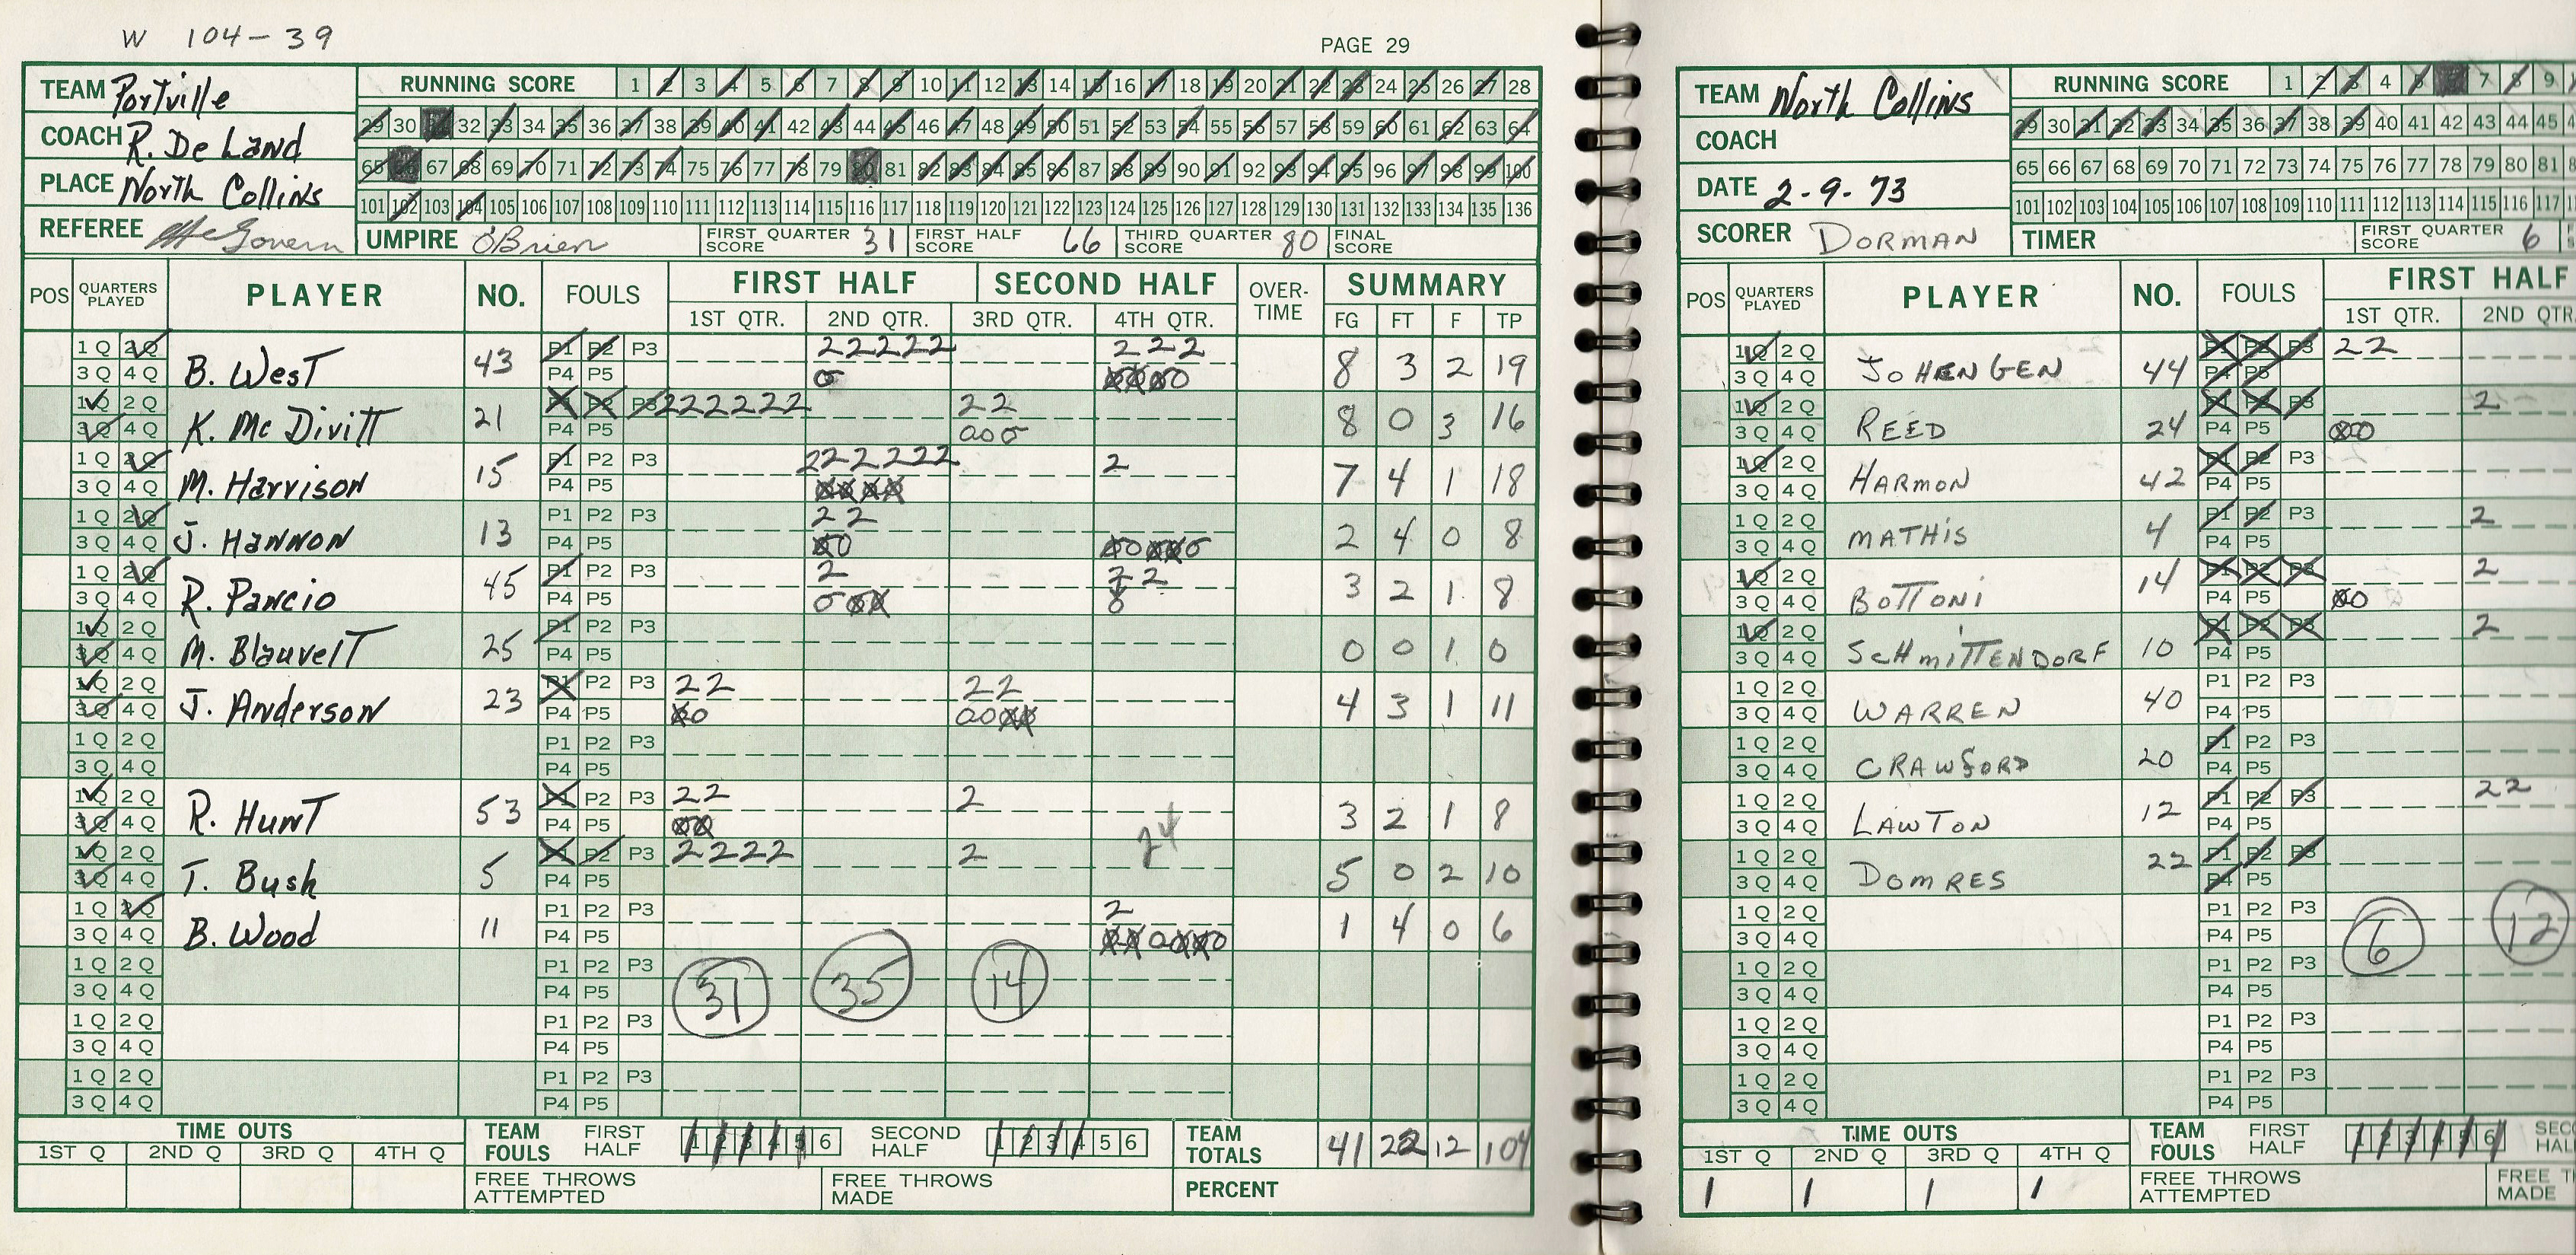 W 104-39
PAGE 29
TEAM Portville
COACH R. De Land
PLACE North Collins
REFEREE McGovern
UMPIRE O'Brien
RUNNING SCORE 1 2 3 4 5 6 7 8 9 10 11 12 13 14 15 16 17 18 19 20 21 22 23 24 25 26 27 28
29 30 31 32 33 34 35 36 37 38 39 40 41 42 43 44 45 46 47 48 49 50 51 52 53 54 55 56 57 58 59 60 61 62 63 64
65 66 67 68 69 70 71 72 73 74 75 76 77 78 79 80 81 82 83 84 85 86 87 88 89 90 91 92 93 94 95 96 97 98 99 100
101 102 103 104 105 106 107 108 109 110 111 112 113 114 115 116 117 118 119 120 121 122 123 124 125 126 127 128 129 130 131 132 133 134 135 136
FIRST QUARTER SCORE 31 FIRST HALF SCORE 66 THIRD QUARTER SCORE 80 FINAL SCORE
POS QUARTERS PLAYED PLAYER NO. FOULS FIRST HALF SECOND HALF OVER-TIME SUMMARY
1ST QTR. 2ND QTR. 3RD QTR. 4TH QTR. FG FT F TP
1Q 2Q 3Q 4Q B. West 43 P1 P2 P3 P4 P5 22222 222 8 3 2 19
1Q 2Q 3Q 4Q K. Mc Divitt 21 P1 P2 P3 P4 P5 222222 22 8 0 3 16
1Q 2Q 3Q 4Q M. Harrison 15 P1 P2 P3 P4 P5 222222 2 7 4 1 18
1Q 2Q 3Q 4Q J. Hannon 13 P1 P2 P3 P4 P5 22 2 4 0 8
1Q 2Q 3Q 4Q R. Pancio 45 P1 P2 P3 P4 P5 2 22 3 2 1 8
1Q 2Q 3Q 4Q M. Blauvelt 25 P1 P2 P3 P4 P5 0 0 1 0
1Q 2Q 3Q 4Q J. Anderson 23 P1 P2 P3 P4 P5 22 22 4 3 1 11
1Q 2Q 3Q 4Q P1 P2 P3 P4 P5
1Q 2Q 3Q 4Q R. Hunt 53 P1 P2 P3 P4 P5 22 2 3 2 1 8
24
1Q 2Q 3Q 4Q T. Bush 5 P1 P2 P3 P4 P5 2222 2 5 0 2 10
1Q 2Q 3Q 4Q B. Wood 11 P1 P2 P3 P4 P5 2 1 4 0 6
1Q 2Q 3Q 4Q P1 P2 P3 P4 P5 31 35 14
1Q 2Q 3Q 4Q P1 P2 P3 P4 P5
1Q 2Q 3Q 4Q P1 P2 P3 P4 P5
TIME OUTS
1ST Q 2ND Q 3RD Q 4TH Q
TEAM FOULS FIRST HALF 1 2 3 4 5 6 SECOND HALF 1 2 3 4 5 6
TEAM TOTALS 41 22 12 104
FREE THROWS ATTEMPTED FREE THROWS MADE PERCENT
TEAM North Collins
COACH
DATE 2-9-73
SCORER DORMAN
TIMER
RUNNING SCORE 1 2 3 4 5 6 7 8 9
29 30 31 32 33 34 35 36 37 38 39 40 41 42 43 44 45
65 66 67 68 69 70 71 72 73 74 75 76 77 78 79 80 81
101 102 103 104 105 106 107 108 109 110 111 112 113 114 115 116 117
FIRST QUARTER SCORE 6
POS QUARTERS PLAYED PLAYER NO. FOULS FIRST HALF
1ST QTR. 2ND QTR.
1Q 2Q 3Q 4Q JOHENGEN 44 P1 P2 P3 P4 P5 22
1Q 2Q 3Q 4Q REED 24 P1 P2 P3 P4 P5 2
1Q 2Q 3Q 4Q HARMON 42 P1 P2 P3 P4 P5
1Q 2Q 3Q 4Q MATHIS 4 P1 P2 P3 P4 P5 2
1Q 2Q 3Q 4Q BOTTONI 14 P1 P2 P3 P4 P5 2
1Q 2Q 3Q 4Q SCHMITTENDORF 10 P1 P2 P3 P4 P5 2
1Q 2Q 3Q 4Q WARREN 40 P1 P2 P3 P4 P5
1Q 2Q 3Q 4Q CRAWFORD 20 P1 P2 P3 P4 P5
1Q 2Q 3Q 4Q LAWTON 12 P1 P2 P3 P4 P5 22
1Q 2Q 3Q 4Q DOMRES 22 P1 P2 P3 P4 P5
1Q 2Q 3Q 4Q P1 P2 P3 P4 P5 6 12
1Q 2Q 3Q 4Q P1 P2 P3 P4 P5
1Q 2Q 3Q 4Q P1 P2 P3 P4 P5
1Q 2Q 3Q 4Q P1 P2 P3 P4 P5
TIME OUTS
1ST Q 2ND Q 3RD Q 4TH Q
1 1 1 1
TEAM FOULS FIRST HALF 1 2 3 4 5 6
FREE THROWS ATTEMPTED MADE